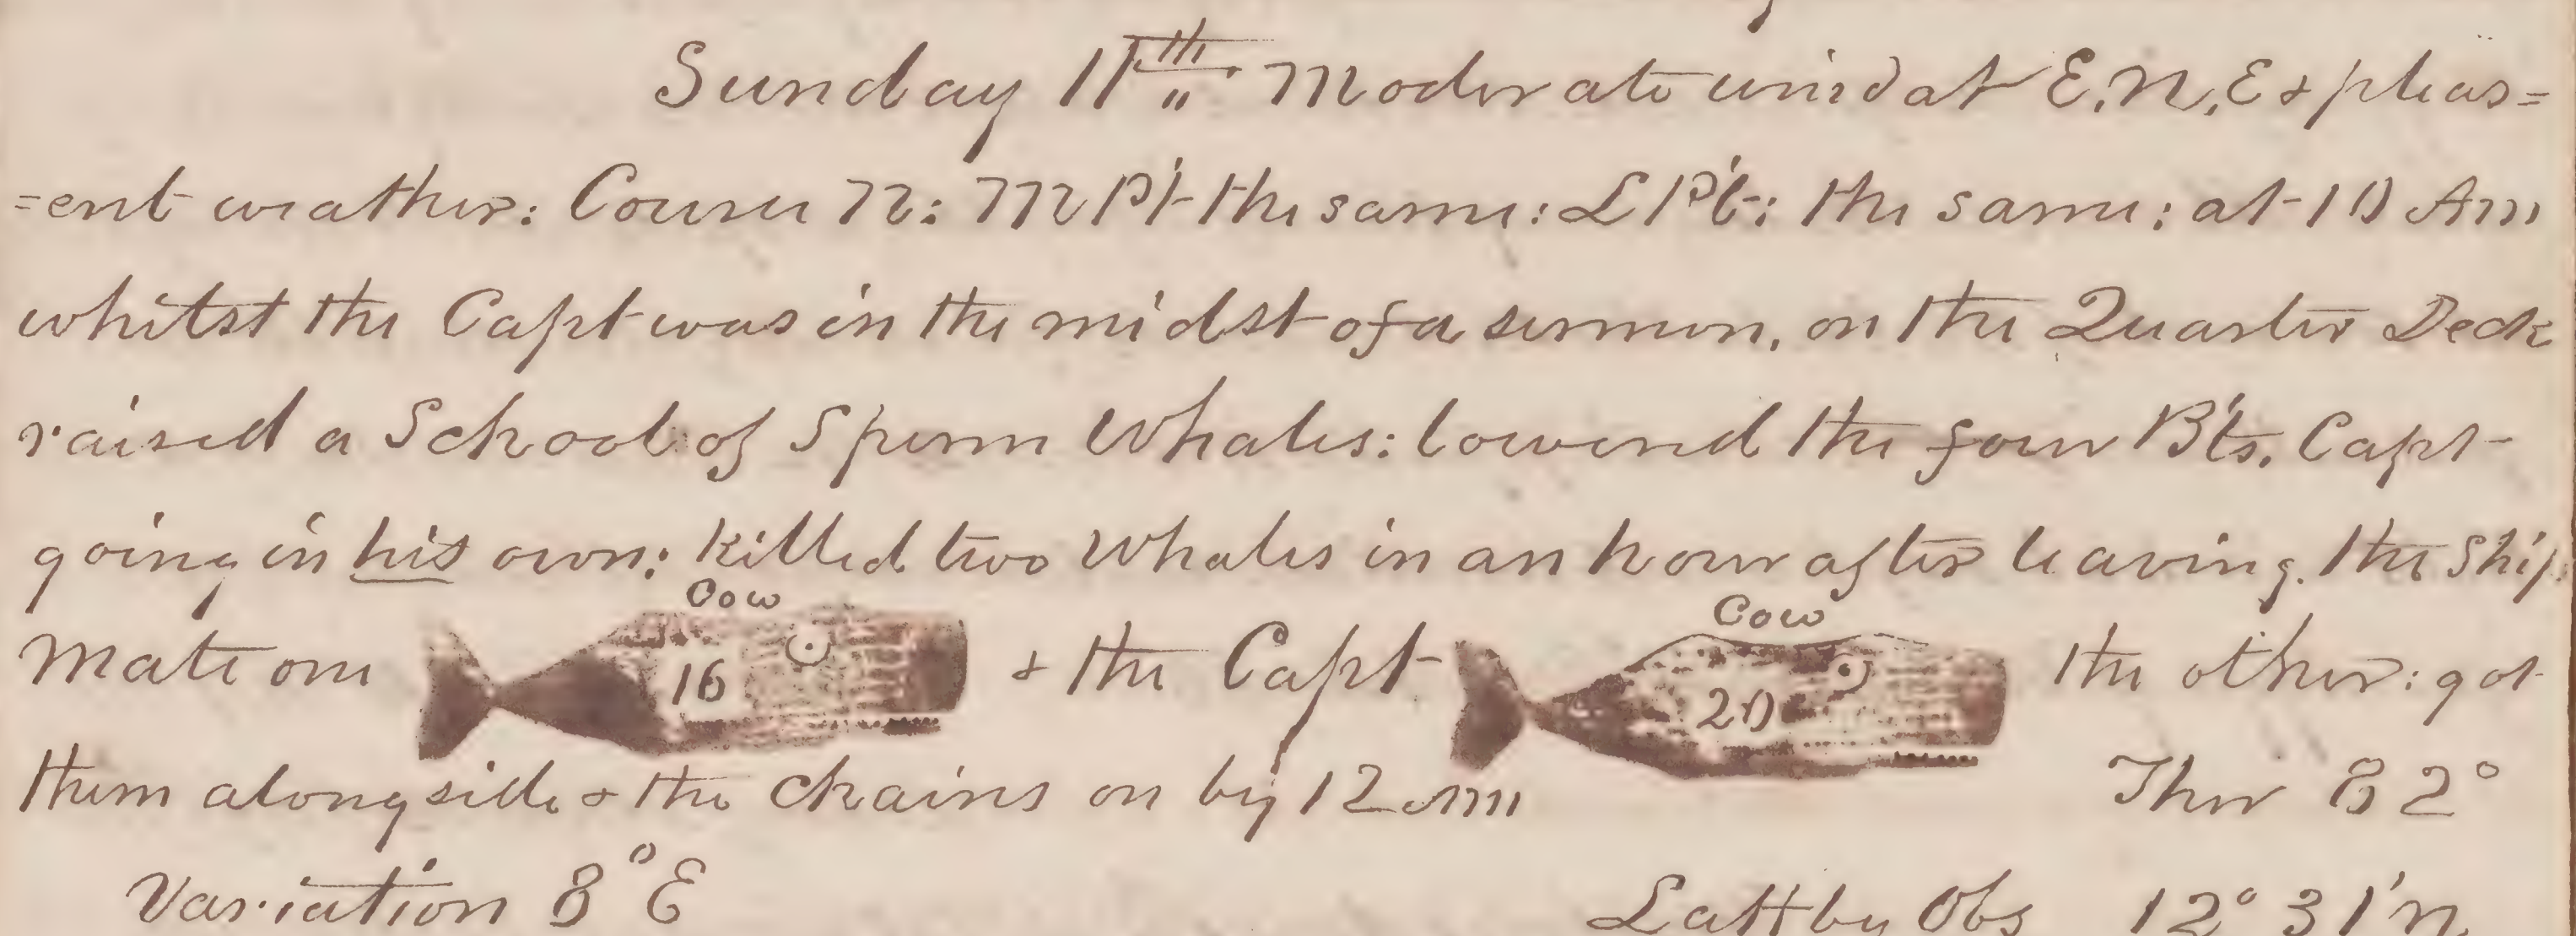 Sunday 11th Moderate wind at E.N.E & pleas=
=ent weather: Course N: M Pt the same: L Pt: the same: at 10 Am
whilst the Capt was in the midst of a sermon, on the Quarter Deck
raised a School of Sperm Whales: lowered the four Bts. Capt
going in his own: killed two Whales in an hour after leaving the Ship
Cow Cow
Mate one 16 & the Capt 20 the other: got
them alongside & the chains on by 12 Am Ther 82°
Variation 8° E Latt by Obs 12° 31' N